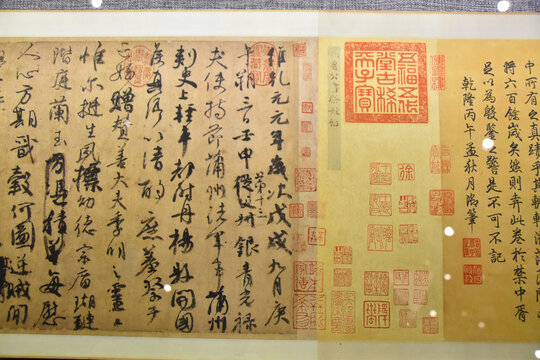 中所有之真蹟乎其輾轉淪落
將六百餘歲矣然則弆此卷於禁中者
足以為殷鑒之警是不可不記
乾隆丙午孟秋月御筆
五福五代
堂古稀
天子寶
維乾元元年歲次戊戌九月庚
午朔三日壬申第十三從父銀青光祿
夫使持節蒲州諸軍事蒲州
刺史上輕車都尉丹楊縣開國
侯真卿以清酌庶羞祭于
亡姪贈贊善大夫季明之靈
惟爾挺生夙標幼德宗廟瑚璉
階庭蘭玉方憑積善每慰
人心方期戩穀何圖逆賊閒